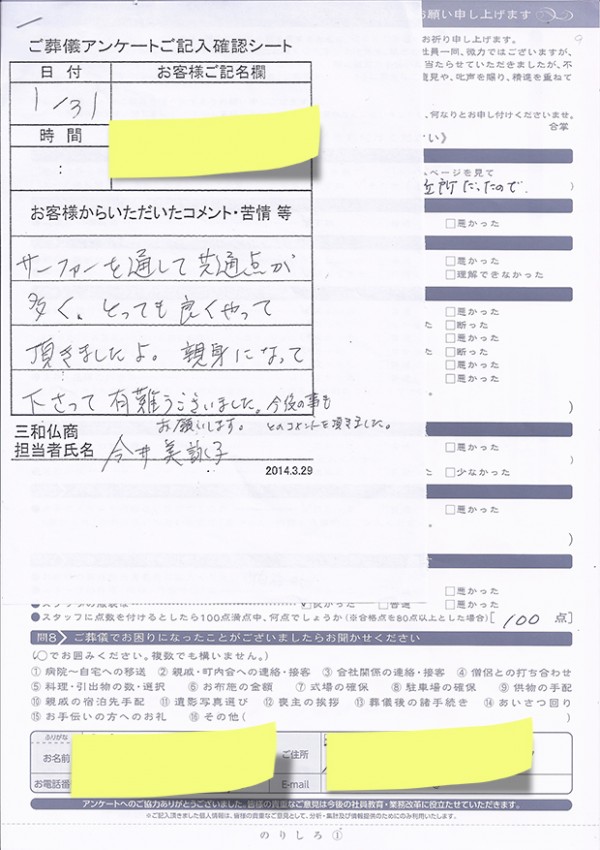 お願い申し上げます
ご葬儀アンケートご記入確認シート
日付
お客様ご記名欄
1/31
時間
:
お客様からいただいたコメント・苦情 等
サーファーを通して共通点が
多く。とっても良くやって
頂きましたよ。親身になって
下さって有難うございました。今後の事も
お願いします。とのコメントを頂きました。
三和仏商
担当者氏名
2014.3.29
お祈り申し上げます。
社員一同、微力ではございますが、
当たらせていただきましたが、不
意見や、叱声を賜り、精進を重ねて
、何なりとお申し付けくださいませ。
合掌
さい》
ページを見て
近所だったので。)
□悪かった
□悪かった
□理解できなかった
□悪かった
□断った
□断った
□悪かった
□悪かった
□悪かった
)
□悪かった
□少なかった
□悪かった
)
□悪かった
□悪かった
●スタッフに点数を付けるとしたら100点満点中、何点でしょうか(※合格点を80点以上とした場合)[100 点]
問8 ご葬儀でお困りになったことがございましたらお聞かせください
(○でお囲みください。複数でも構いません。)
①病院〜自宅への移送 ②親戚・町内会への連絡・接客 ③会社関係の連絡・接客 ④僧侶との打ち合わせ
⑤料理・引出物の数・選択 ⑥お布施の金額 ⑦式場の確保 ⑧駐車場の確保 ⑨供物の手配
⑩親戚の宿泊先手配 ⑪遺影写真選び ⑫喪主の挨拶 ⑬葬儀後の諸手続き ⑭あいさつ回り
⑮お手伝いの方へのお礼 ⑯その他( )
ふりがな
お名前
ご住所
お電話番
E-mail
アンケートへのご協力ありがとうございました。皆様の貴重なご意見は今後の社員教育・業務改革に役立たせていただきます。
※ご記入頂きました個人情報は、皆様の貴重なご意見として、分析・集計及び情報提供のためにのみ利用いたします。
のりしろ①